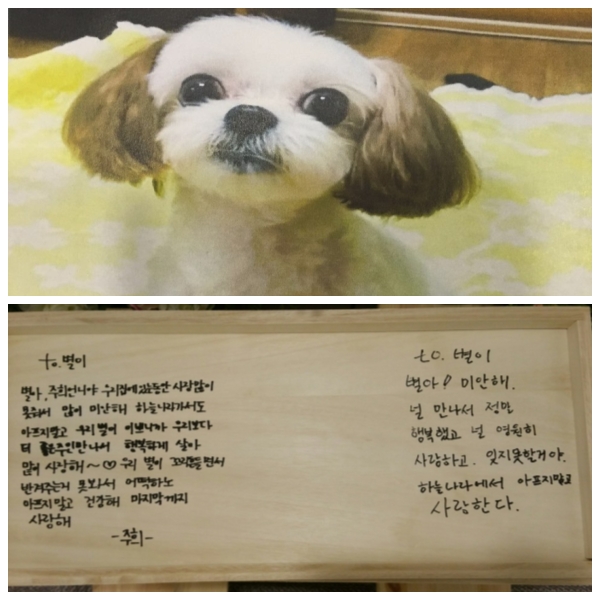 to. 별이
별아, 주희언니야 우리집에 있는동안 사랑 많이
못줘서 많이 미안해 하늘나라가서도
아프지말고 우리 별이 이쁘니까 우리보다
더 좋은주인만나서 행복하게 살아
많이 사랑해~♡ 우리 별이 꼬리흔들면서
반겨주는거 못봐서 어떡하노
아프지 말고 건강해 마지막까지
사랑해
-주희-
to. 별이
별아! 미안해.
널 만나서 정말
행복했고 널 영원히
사랑하고. 잊지못할거야.
하늘나라에서 아프지말고
사랑한다.